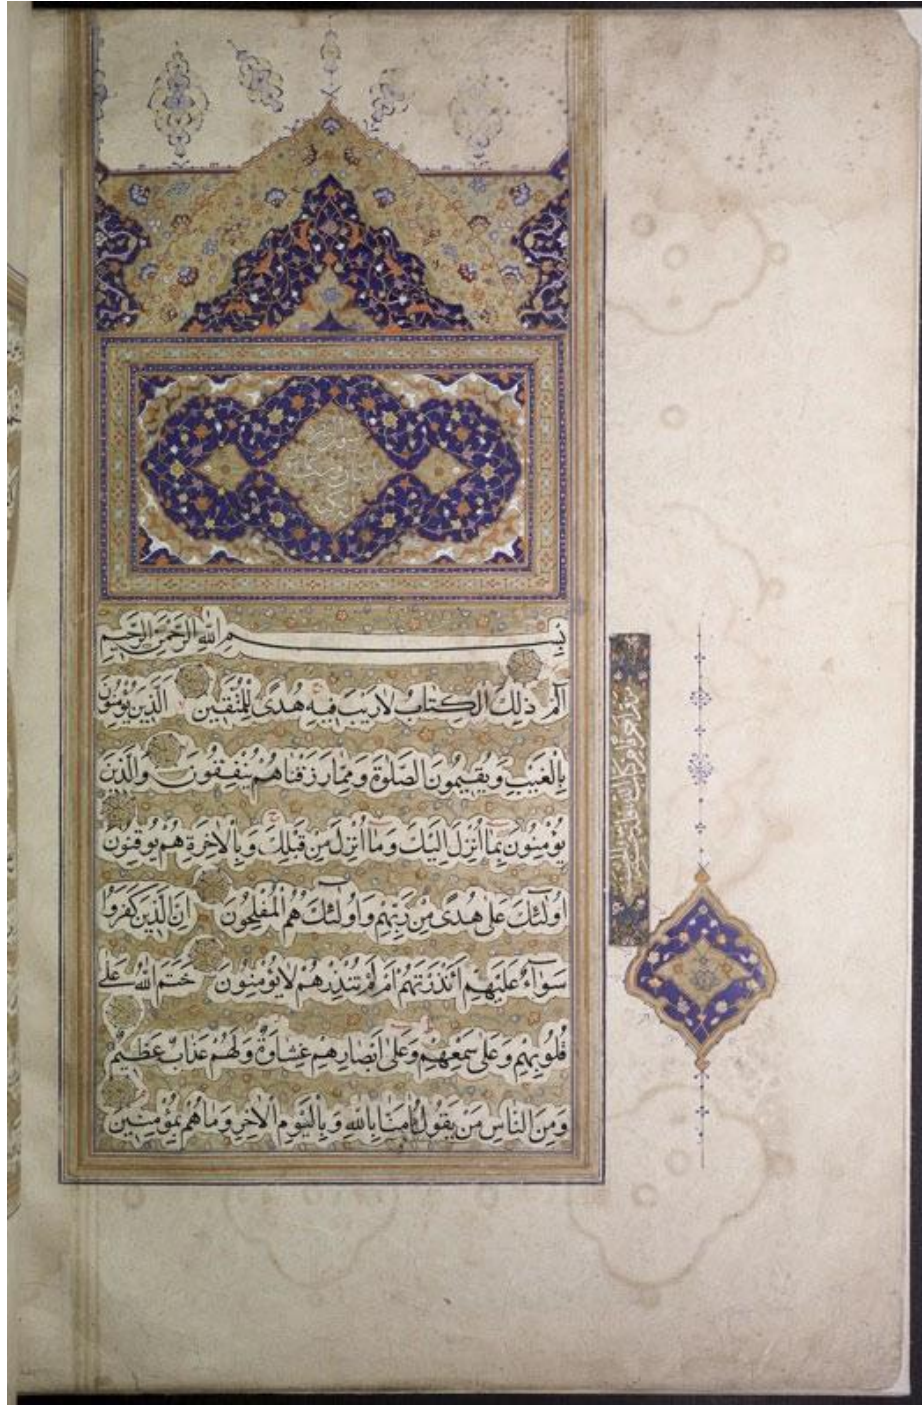 بِسْمِ اللهِ الرَّحْمٰنِ الرَّحِيْمِ
الٓمٓ ذٰلِكَ الْكِتَابُ لَارَيْبَ فِيهِ هُدًى لِلْمُتَّقِينَ الَّذِينَ يُؤْمِنُونَ
بِالْغَيْبِ وَيُقِيمُونَ الصَّلٰوةَ وَمِمَّا رَزَقْنَاهُمْ يُنْفِقُونَ وَالَّذِينَ
يُؤْمِنُونَ بِمَا اُنْزِلَ اِلَيْكَ وَمَا اُنْزِلَ مِنْ قَبْلِكَ وَبِالْاٰخِرَةِ هُمْ يُوقِنُونَ
اُولٰٓئِكَ عَلٰى هُدًى مِنْ رَبِّهِمْ وَاُولٰٓئِكَ هُمُ الْمُفْلِحُونَ اِنَّ الَّذِينَ كَفَرُوا
سَوَآءٌ عَلَيْهِمْ ءَاَنْذَرْتَهُمْ اَمْ لَمْ تُنْذِرْهُمْ لَا يُؤْمِنُونَ خَتَمَ اللهُ عَلٰى
قُلُوبِهِمْ وَعَلٰى سَمْعِهِمْ وَعَلٰى اَبْصَارِهِمْ غِشَاوَةٌ وَلَهُمْ عَذَابٌ عَظِيمٌ
وَمِنَ النَّاسِ مَنْ يَقُولُ اٰمَنَّا بِاللهِ وَبِالْيَوْمِ الْاٰخِرِ وَمَا هُمْ بِمُؤْمِنِينَ